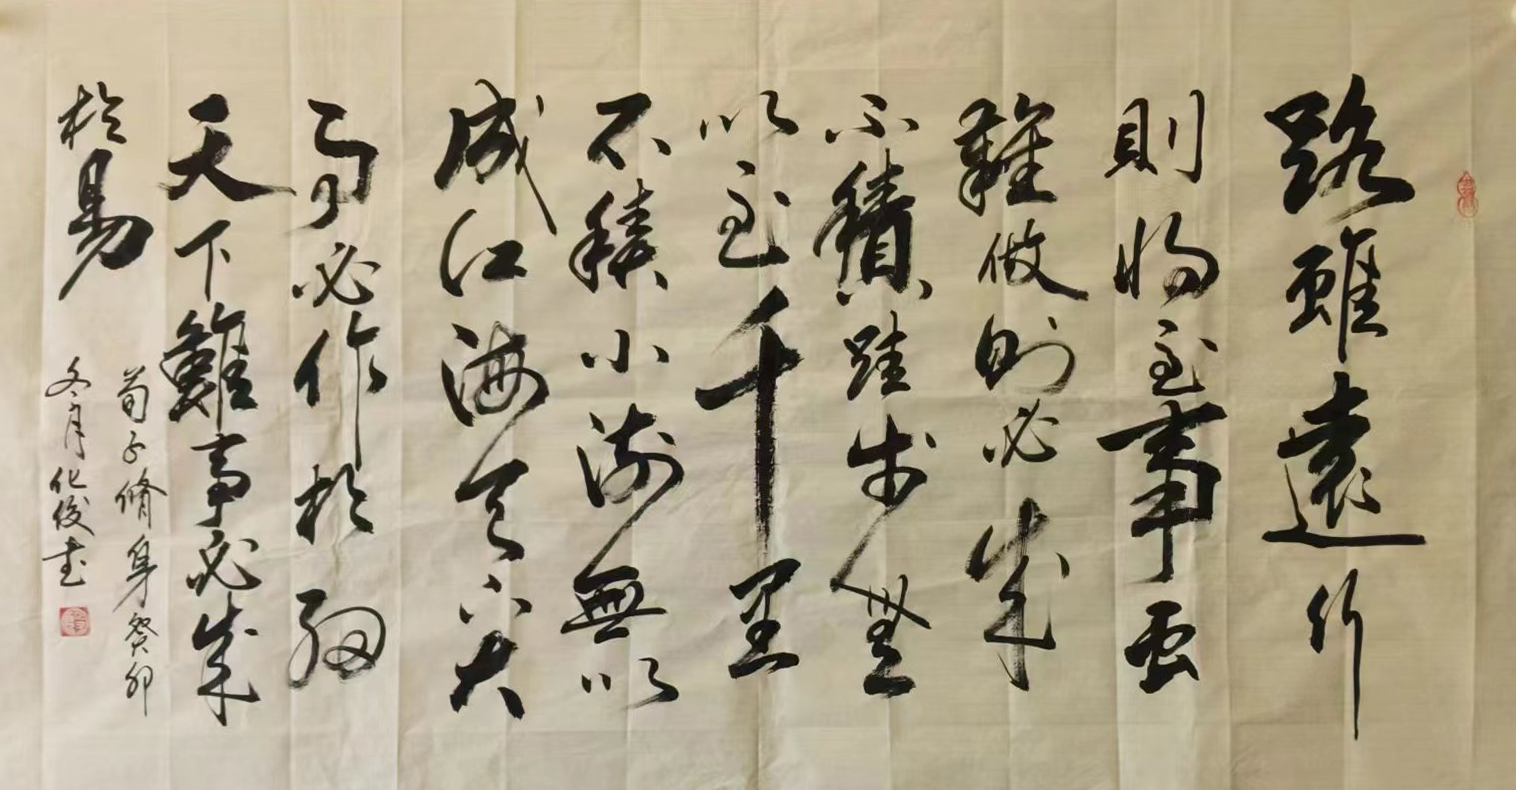 路雖遠行
則將至事虽
難做则必成
不積跬步無
以至千里
不積小流無以
成江海天下大
事必作於細
天下難事必成
於易
荀子脩身癸卯
冬月化俊書